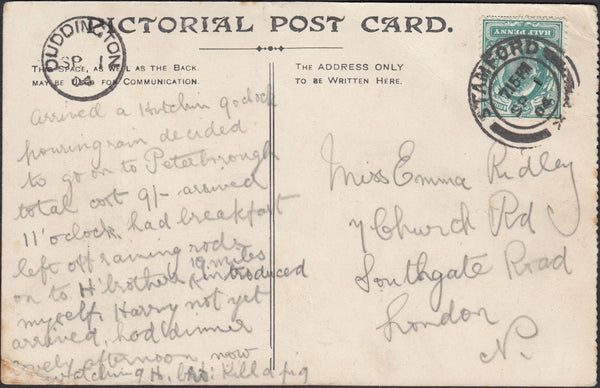 PICTORIAL POST CARD.
THIS SPACE, AS WELL AS THE BACK,
MAY BE USED FOR COMMUNICATION.
THE ADDRESS ONLY
TO BE WRITTEN HERE.
DUDDINGTON
SP 1
04
HALF PENNY
STAMFORD
7.15 PM
SP 1
04
arrived a Hitchin 9 oclock
pouring rain decided
to go on to Peterborough
total cost 9/- arrived
11 'oclock. had breakfast
left off raining rode
on to H' brothers 12 miles
introduced
myself. Harry not yet
arrived, had dinner
lovely afternoon now
watching H. bro: Kill a pig
Miss Emma Ridley
7 Church Rd
Southgate Road
London
N.